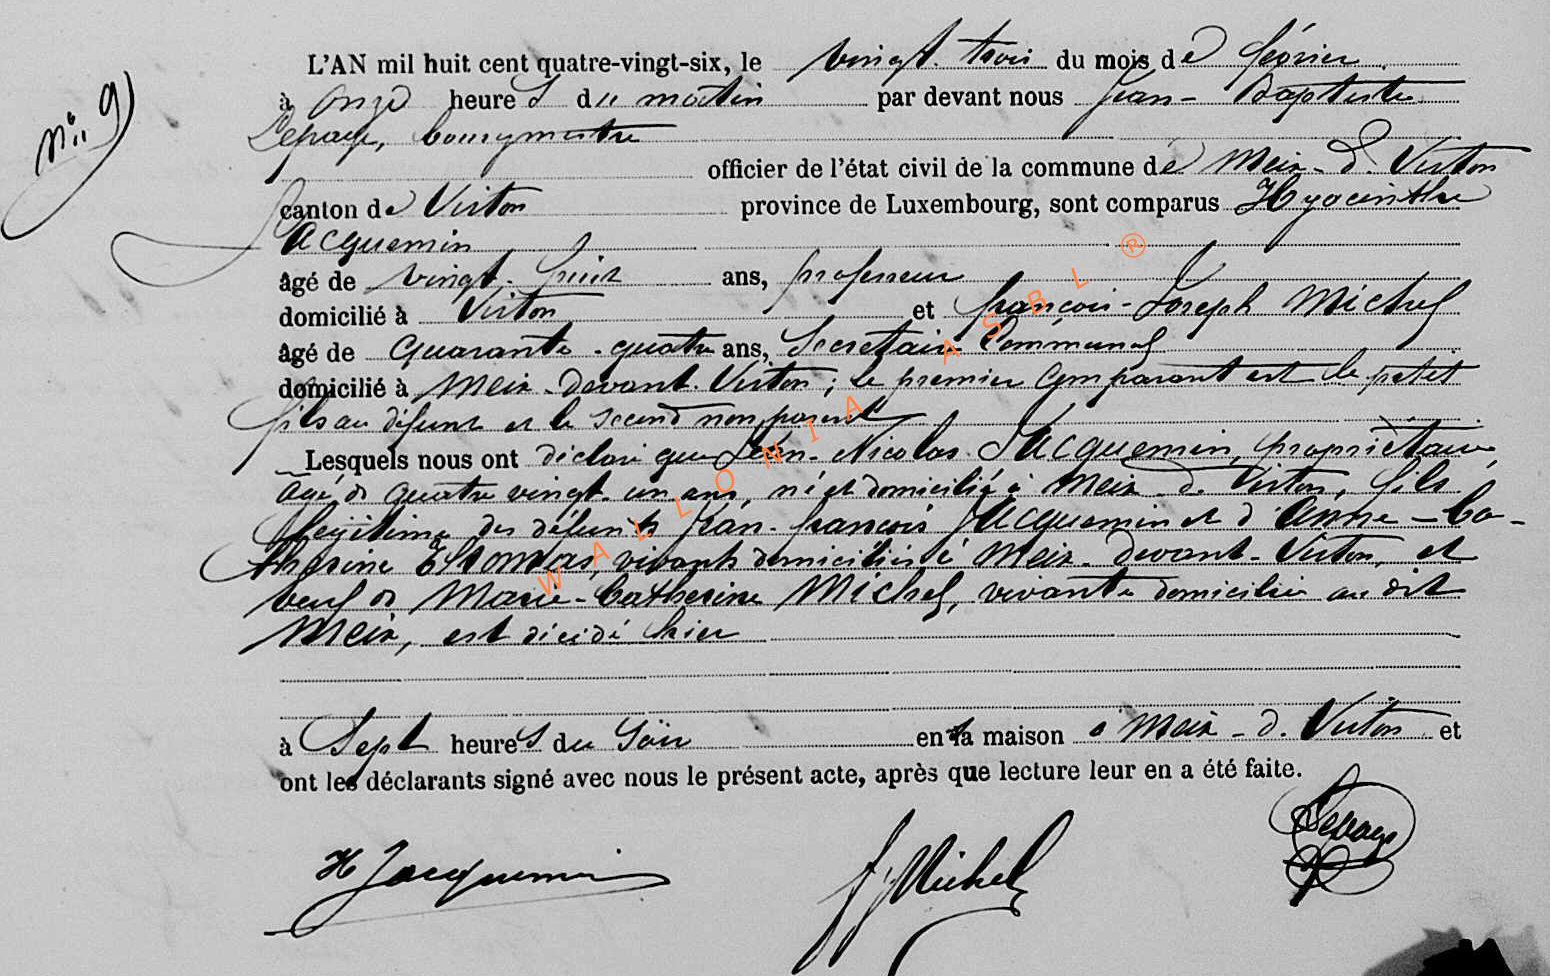 N° 9
L'AN mil huit cent quatre-vingt-six, le vingt-trois du mois de février
à onze heures du matin par devant nous Jean-Baptiste
Lepage, bourgmestre
officier de l'état civil de la commune de Meix-d. Virton
canton de Virton province de Luxembourg, sont comparus Hyacinthe
Jacquemin
âgé de vingt-huit ans, professeur
domicilié à Virton et françois-Joseph Michel
âgé de quarante-quatre ans, Secrétaire Communal
domicilié à Meix-devant-Virton; le premier comparant est le petit
fils au défunt et le second non parent
Lesquels nous ont déclaré que Jean-Nicolas Jacquemin, propriétaire,
âgé de quatre vingt-un ans, né et domicilié à Meix-d. Virton, fils
légitime des défunts Jean-françois Jacquemin et d'Anne-Ca-
thérine, vivants domiciliés à Meix-devant-Virton, et
veuf de Marie-Catherine Michel, vivante domiciliée au dit
Meix, est décédé hier
à Sept heures du Soir en sa maison à Meix-d. Virton et
ont les déclarants signé avec nous le présent acte, après que lecture leur en a été faite.
H Jacquemin
fj Michel
Lepage
WALLONIA ASBL ®